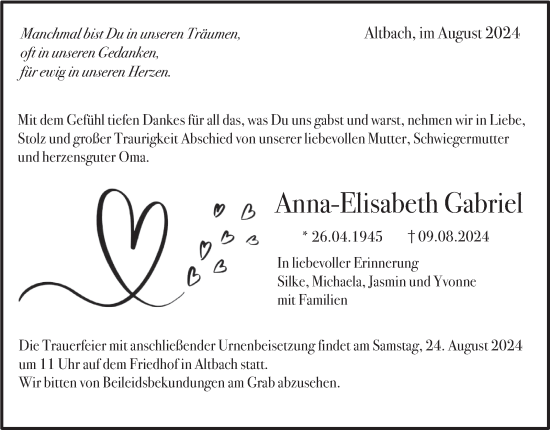 Manchmal bist Du in unseren Träumen,
oft in unseren Gedanken,
für ewig in unseren Herzen.
Altbach, im August 2024
Mit dem Gefühl tiefen Dankes für all das, was Du uns gabst und warst, nehmen wir in Liebe,
Stolz und großer Traurigkeit Abschied von unserer liebevollen Mutter, Schwiegermutter
und herzensguter Oma.
Anna-Elisabeth Gabriel
* 26.04.1945 † 09.08.2024
In liebevoller Erinnerung
Silke, Michaela, Jasmin und Yvonne
mit Familien
Die Trauerfeier mit anschließender Urnenbeisetzung findet am Samstag, 24. August 2024
um 11 Uhr auf dem Friedhof in Altbach statt.
Wir bitten von Beileidsbekundungen am Grab abzusehen.